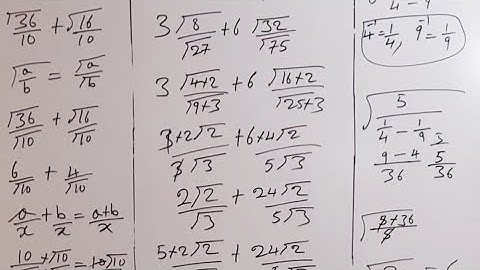 √36/10 + √16/10
√a/b = √a/√b
√36/√10 + √16/√10
6/√10 + 4/√10
a/x + b/x = a+b/x
10/√10 × √10/√10 = 10√10
3√8/√27 + 6√32/√75
3√4×2/√9×3 + 6√16×2/√25×3
3×2√2/3√3 + 6×4√2/5√3
2√2/√3 + 24√2/5√3
5×2√2/5√3 + 24√2
4-9
4⁻¹=1/4, 9⁻¹=1/9
√5/(1/4 - 1/9)
9-4/36 5/36
√5×36/5